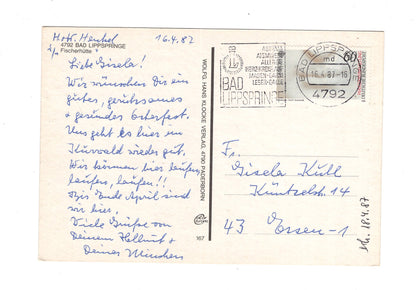 H. + W. Henkel 16.4.87
4792 BAD LIPPSPRINGE
Fischerhütte
Liebe Gisela!
Wir wünschen Dir ein
gutes, geruhsames
+ gesundes Osterfest.
Uns geht es hier im
Kurwald wieder gut.
Wir können hier laufen,
laufen, laufen!!
Bis Ende April sind
wir hier.
Viele Grüße von
Deinem Hellmut +
Deines
WOLFG. HANS KLOCKE VERLAG, 4790 PADERBORN
167
BAD
LIPPSPRINGE
BAD LIPPSPRINGE
md
16.4.87-16
4792
60
Fr.
Gisela Kull
Küntzelstr. 14
43 Essen-1
18.4.87